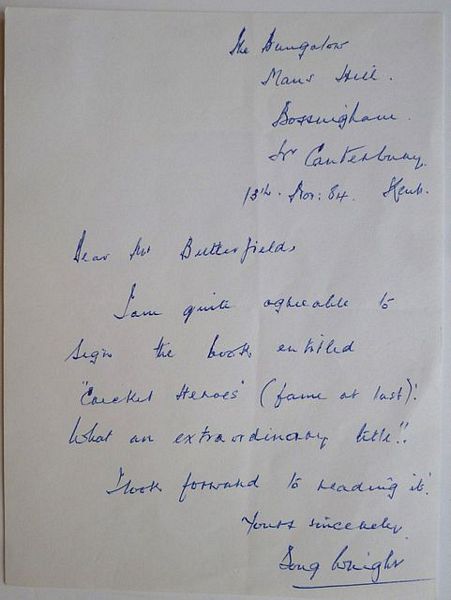 The Bungalow
Mans Hill.
Bossingham.
Nr Canterbury.
13th. Nov: 84. Kent.
Dear Mr Butterfield,
I am quite agreeable to
sign the book entitled
"Cricket Heroes" (fame at last)!
What an extraordinary title!!
I look forward to reading it!
Yours sincerely,
Doug Wright